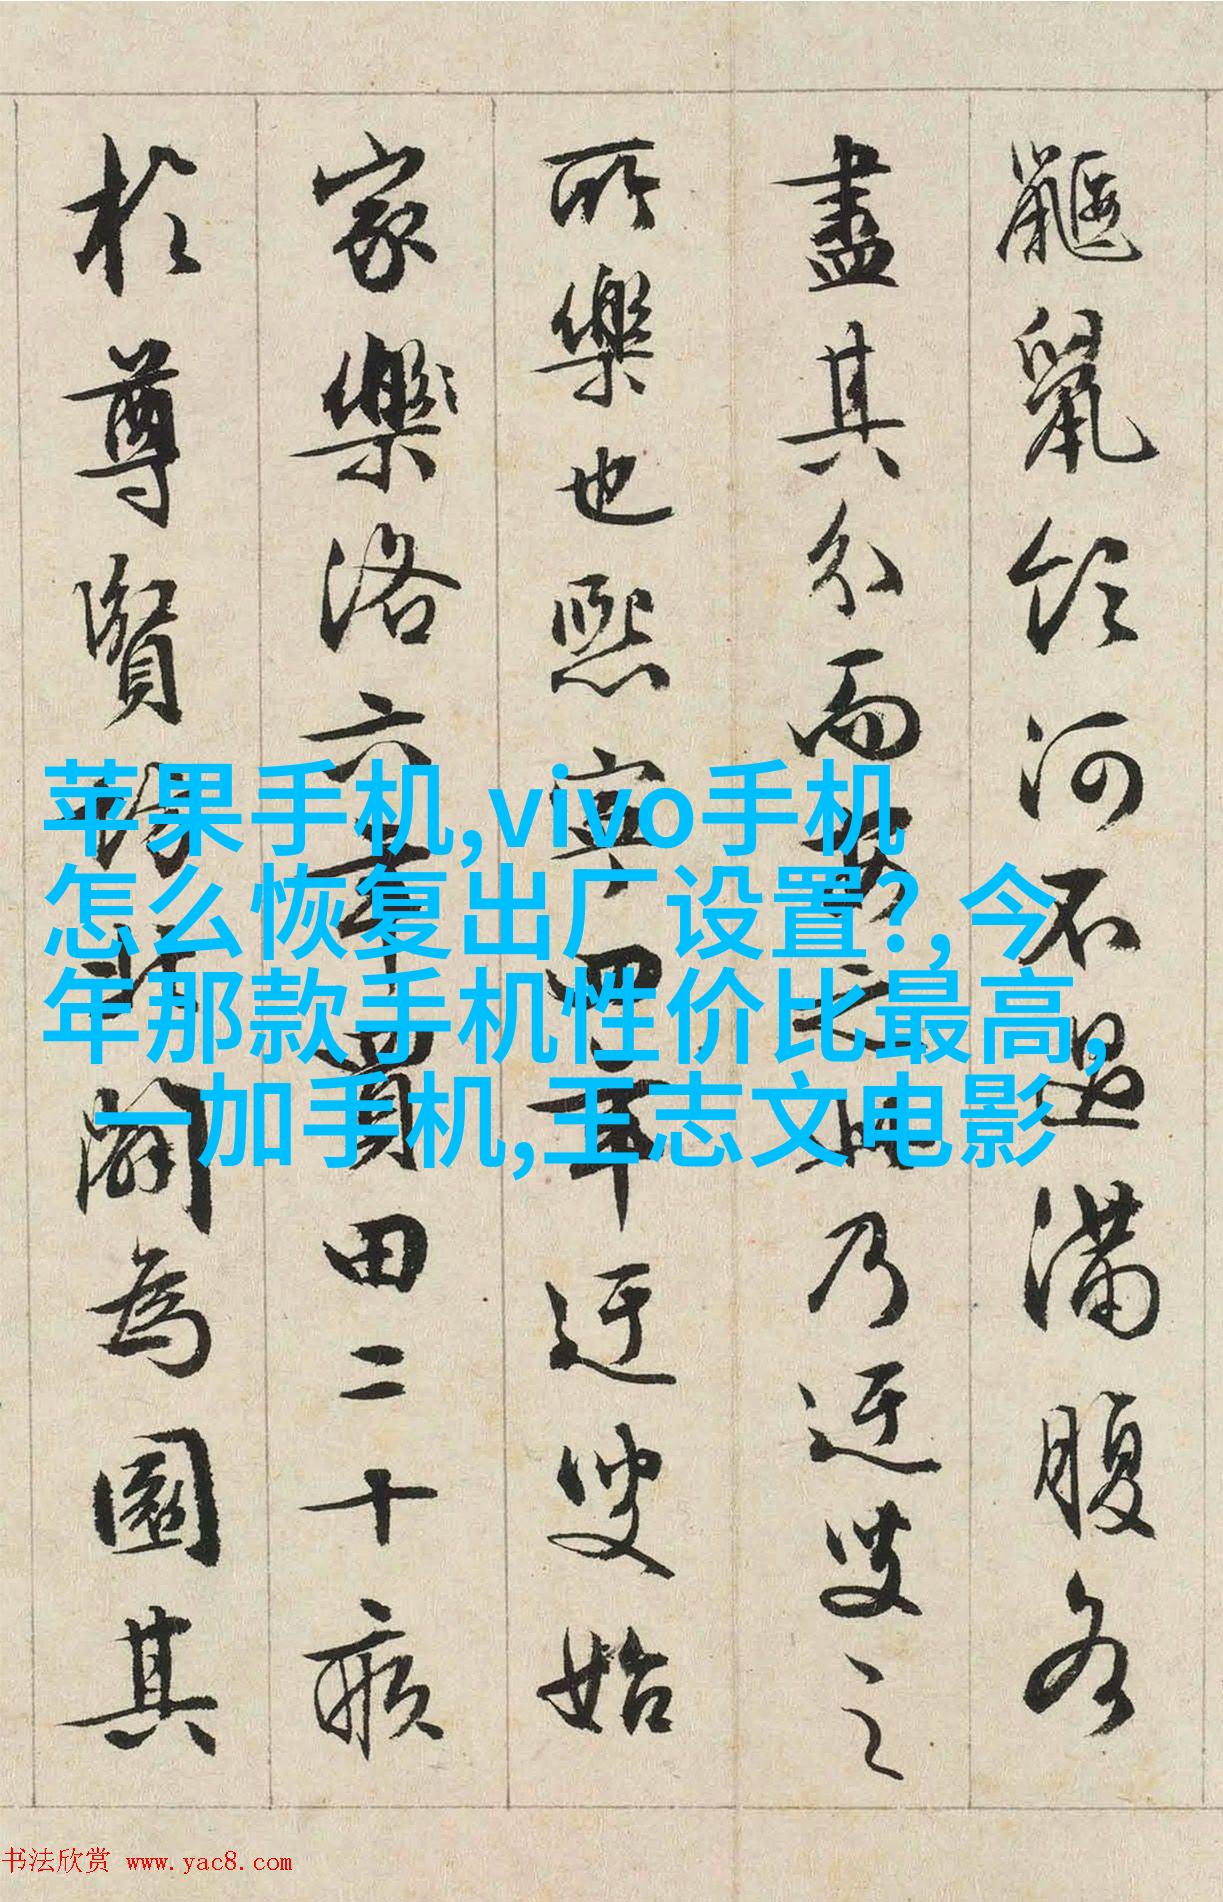 鼴鼠飲河不過滿腹各
盡其分而安之此乃迂叟之
所樂也熙寧四年迂叟始
家樂洛六年買田二十畝
於尊賢坊北闢為園其
苹果手机,vivo手机
怎么恢复出厂设置?,今
年那款手机性价比最高,
一加手机,王志文电影
书法欣赏 www.yac8.com